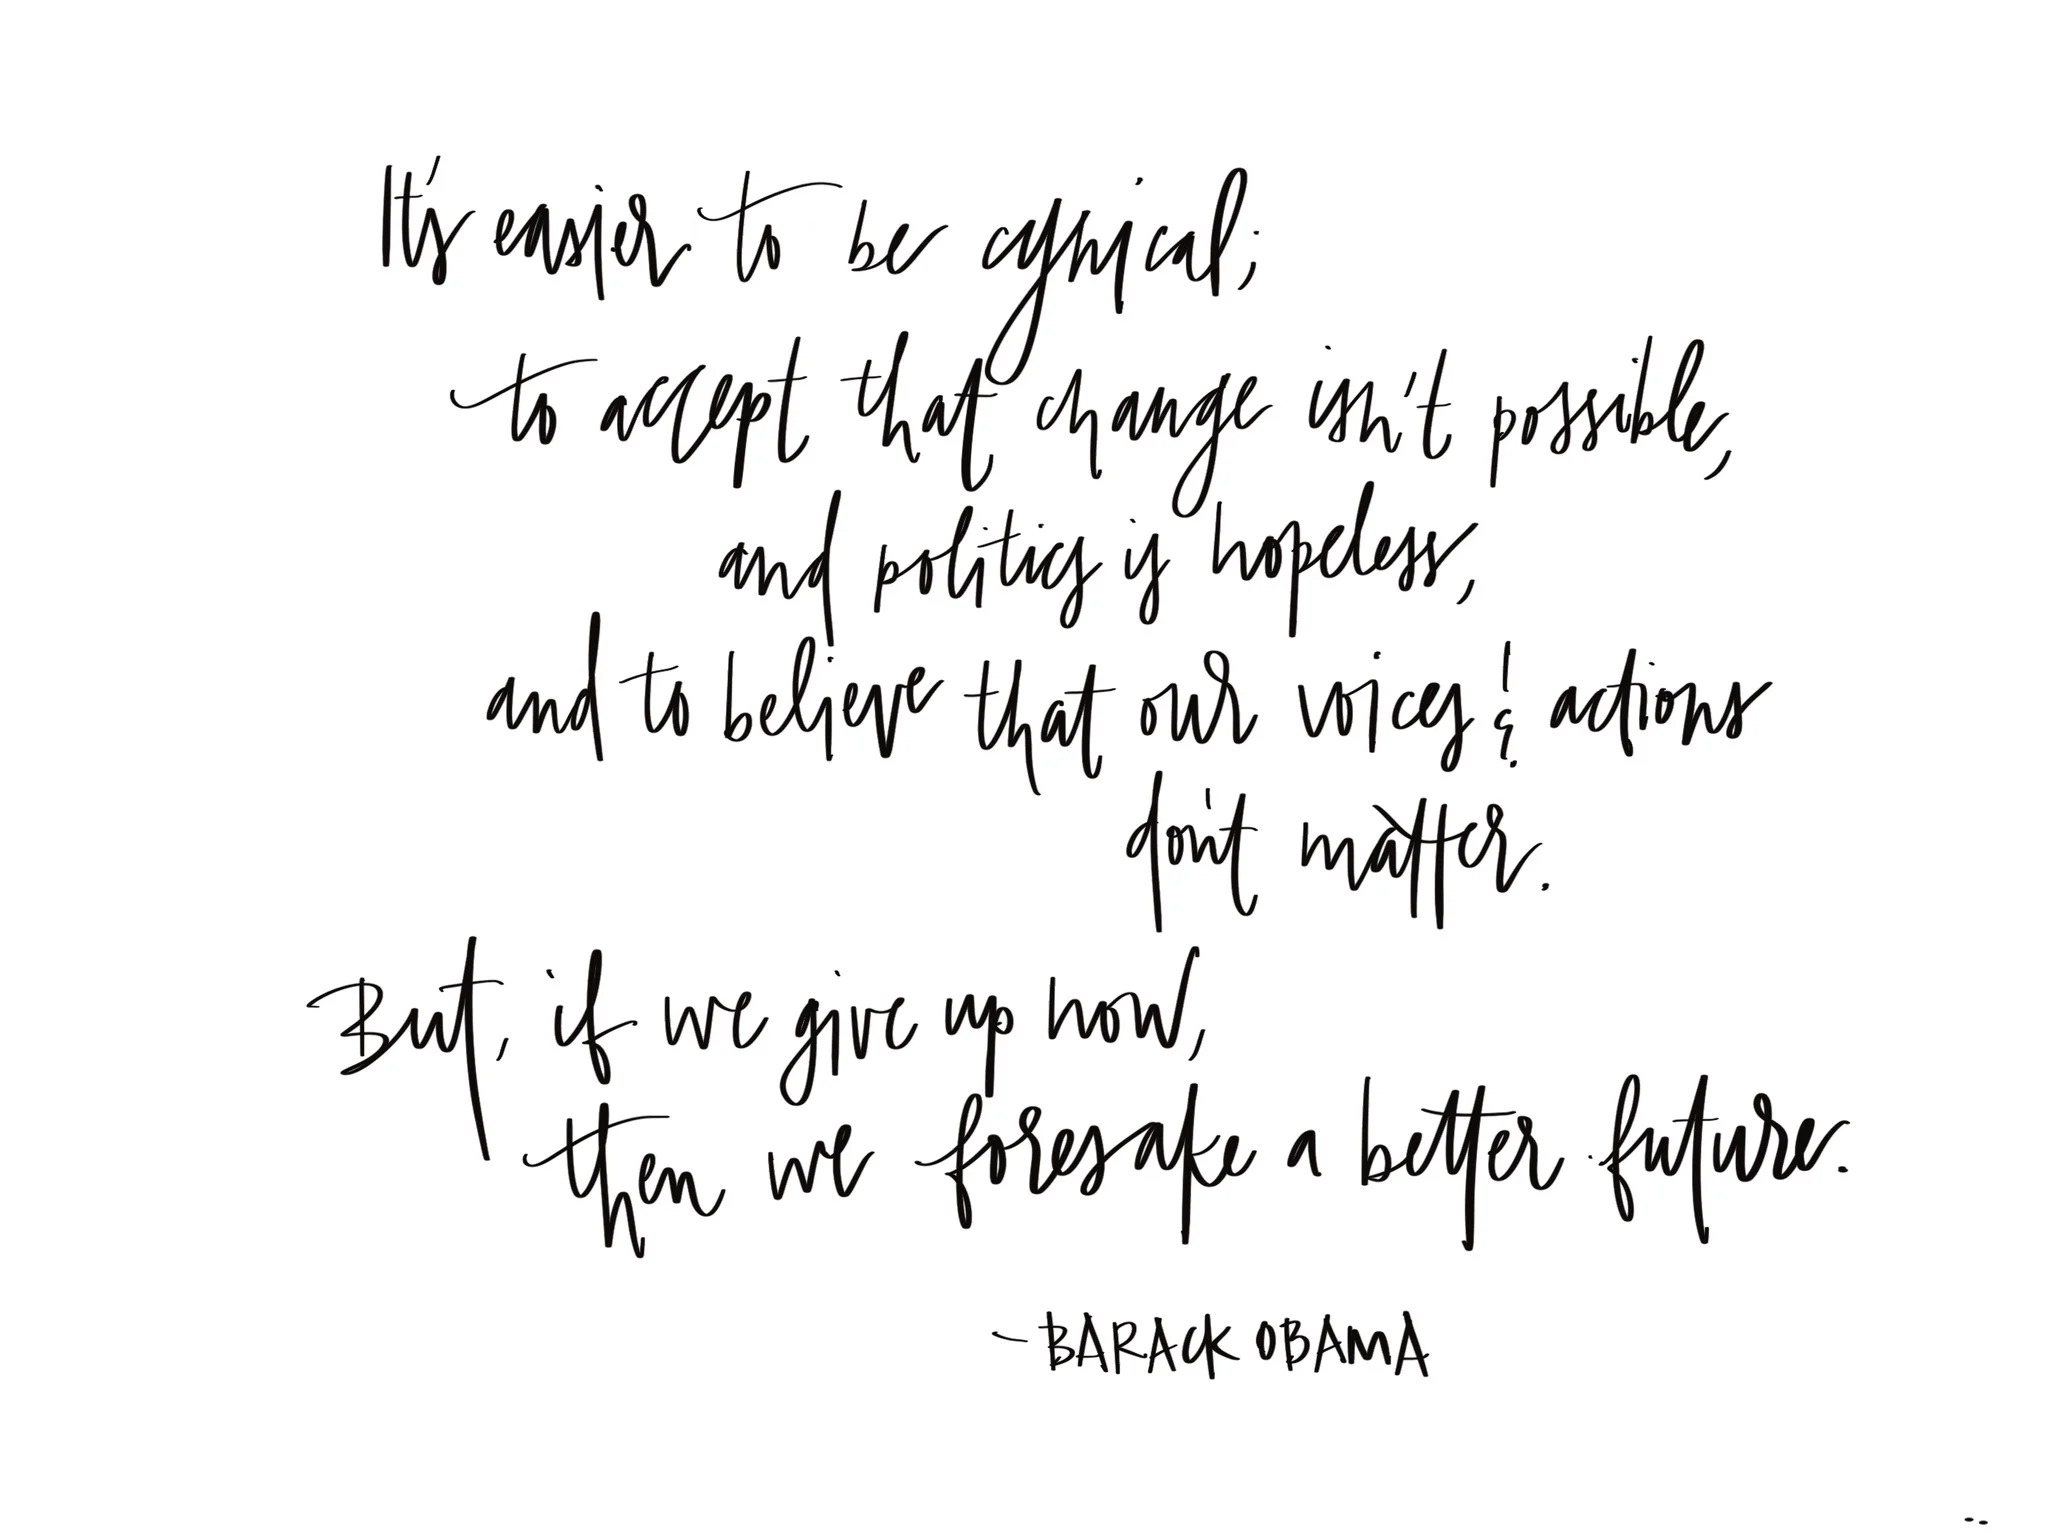 It's easier to be cynical;
to accept that change isn't possible,
and politics is hopeless,
and to believe that our voices & actions
don't matter.
But, if we give up now,
then we foresake a better future.
- BARACK OBAMA